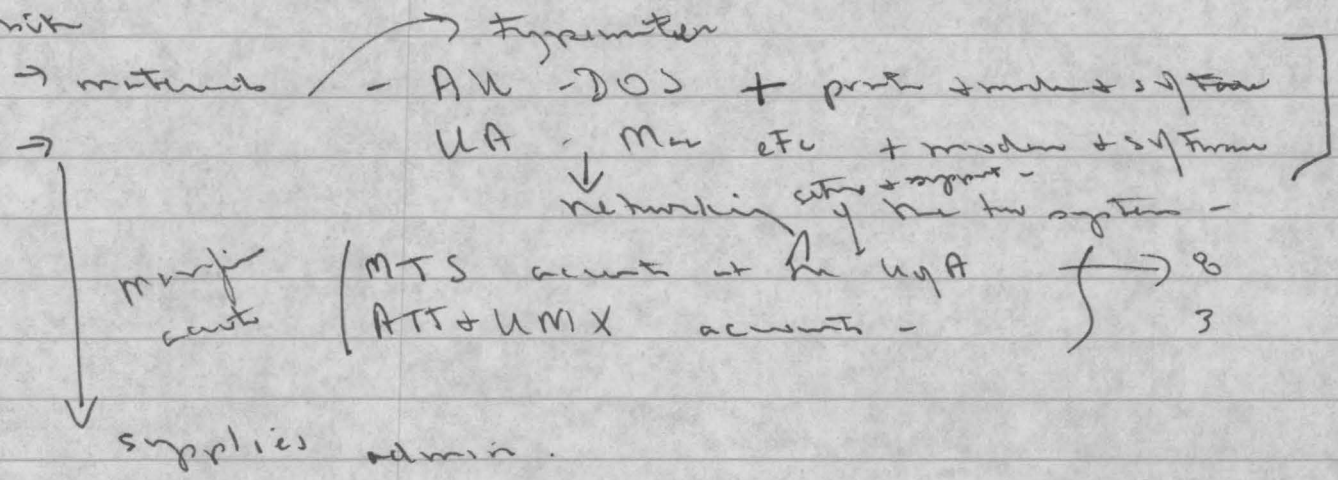 → typewriter
→ materials - AU - DOS + printer + modem + software
→ UA - Mac etc + modem + software
setup + support -
networking of the two systems -
accounts MTS accounts at the UofA → 8
ATT + UNIX accounts - 3
supplies admin.